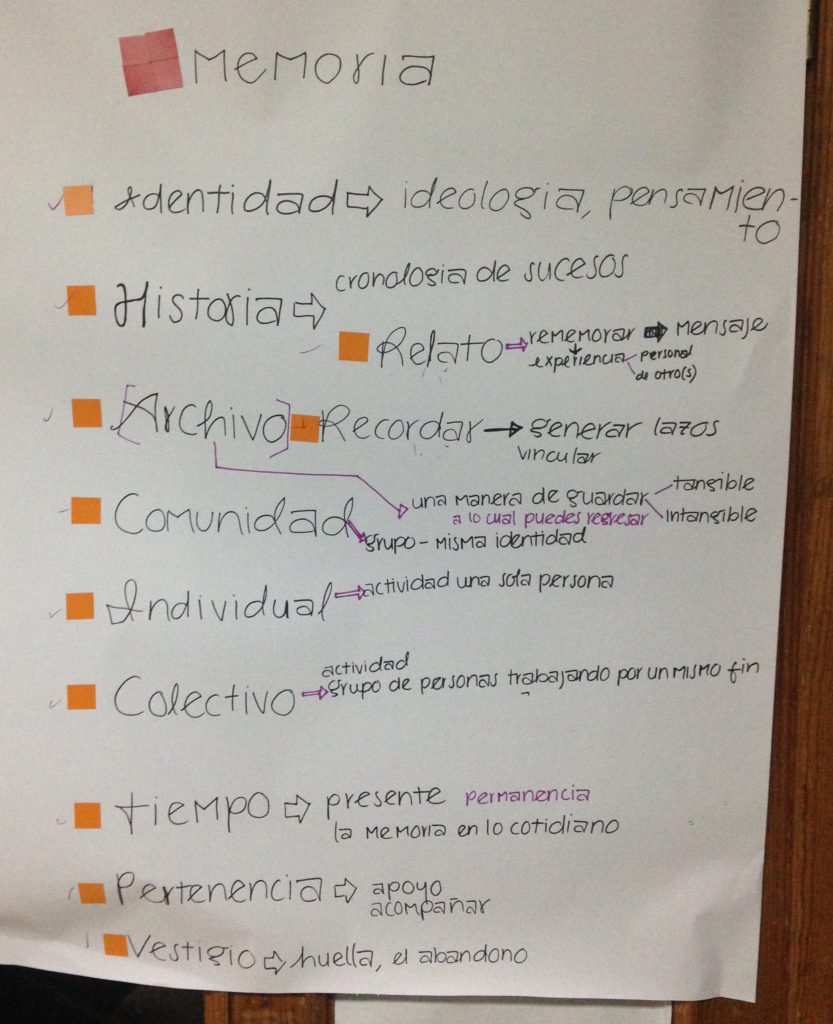 memoria
Identidad ⇨ ideologia, pensamien-
to
Historia ⇨ cronologia de sucesos
Relato ⇨ rememorar ➡ mensaje
experiencia personal
de otro(s)
[Archivo] Recordar → generar lazos
vincular
una manera de guardar tangible
a lo cual puedes regresar intangible
Comunidad
grupo - misma identidad
Individual ⇨ actividad una sola persona
actividad
Colectivo ⇨ grupo de personas trabajando por un mismo fin
tiempo ⇨ presente permanencia
la memoria en lo cotidiano
Pertenencia ⇨ apoyo
acompañar
Vestigio ⇨ huella, el abandono